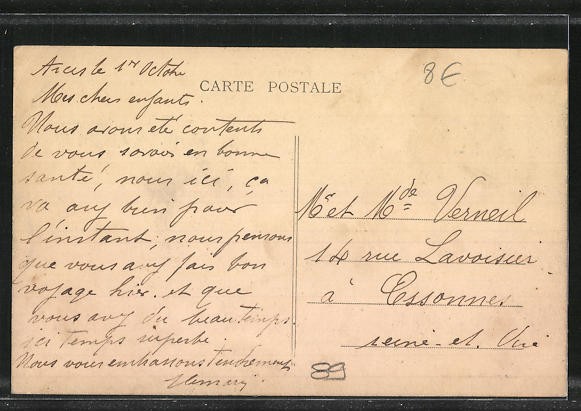 Arcis le 1er Octobre
CARTE POSTALE
8€
Mes chers enfants.
Nous avons été contents
de vous savoir en bonne
santé, nous ici, ça
va auy bien pour
l'instant, nous pensons
que vous avy fais bon
voyage hier. et que
vous avy du beau temps.
ici temps superbe.
Nous vous embrassons tendrement
Mr et Mde Verneil
14 rue Lavoisier
à Essonnes
seine-et-
89